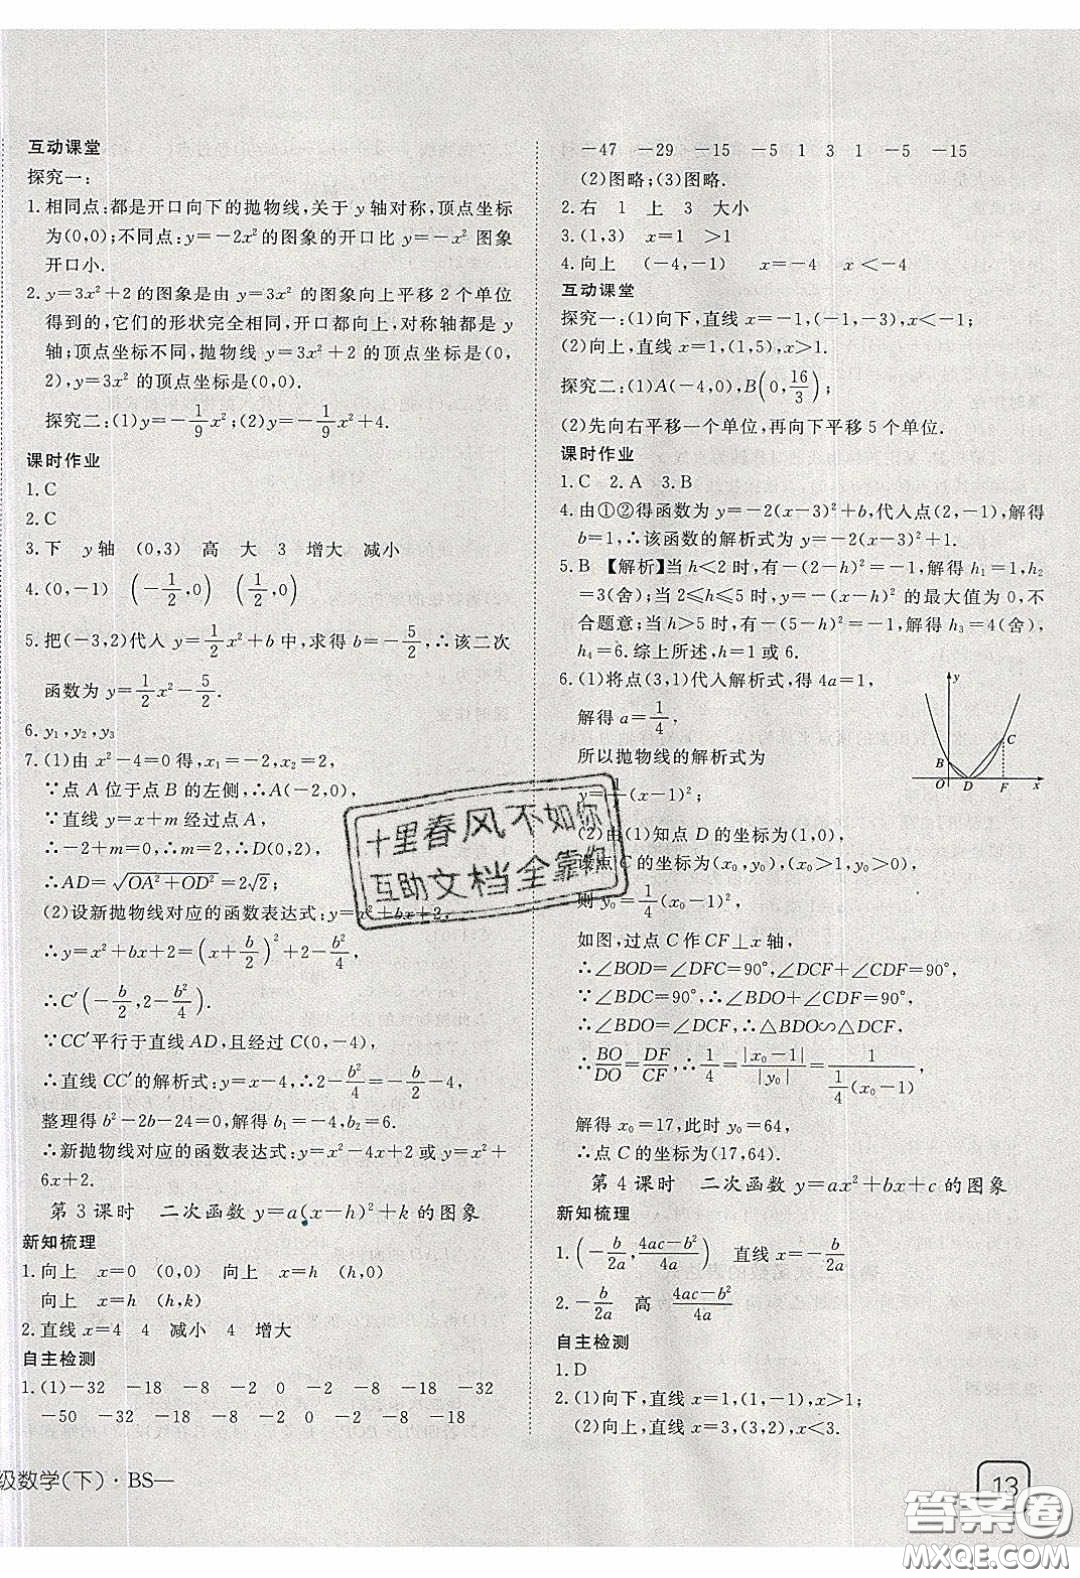 互动课堂
探究一:
1.相同点:都是开口向下的抛物线,关于 y 轴对称,顶点坐标
为(0,0);不同点:y=-2x²的图象的开口比 y=-x² 图象
开口小.
2.y=3x²+2 的图象是由 y=3x² 的图象向上平移 2 个单位
得到的,它们的形状完全相同,开口都向上,对称轴都是 y
轴;顶点坐标不同,抛物线 y=3x²+2 的顶点坐标是(0,
2),y=3x² 的顶点坐标是(0,0).
探究二:(1)y=-1/9x²;(2)y=-1/9x²+4.
课时作业
1.C
2.C
3.下 y 轴 (0,3) 高 大 3 增大 减小
4.(0,-1) (-1/2,0) (1/2,0)
5.把(-3,2)代入 y=1/2x²+b 中,求得 b=-5/2,∴该二次
函数为 y=1/2x²-5/2.
6.y₁,y₂,y₃
7.(1)由 x²-4=0 得,x₁=-2,x₂=2,
∵点 A 位于点 B 的左侧,∴A(-2,0),
∵直线 y=x+m 经过点 A,
∴-2+m=0,∴m=2,∴D(0,2),
∴AD=√(OA²+OD²)=2√2;
(2)设新抛物线对应的函数表达式:y=x²+bx+2,
∴y=x²+bx+2=(x+b/2)²+2-b²/4,
∴C′(-b/2,2-b²/4).
∵CC′平行于直线 AD,且经过 C(0,-4),
∴直线 CC′的解析式:y=x-4,∴2-b²/4=-b/2-4,
整理得 b²-2b-24=0,解得 b₁=-4,b₂=6.
∴新抛物线对应的函数表达式:y=x²-4x+2 或 y=x²+
6x+2.
第 3 课时 二次函数 y=a(x-h)²+k 的图象
新知梳理
1.向上 x=0 (0,0) 向上 x=h (h,0)
向上 x=h (h,k)
2.直线 x=4 4 减小 4 增大
自主检测
1.(1)-32 -18 -8 -2 0 -2 -8 -18 -32
-50 -32 -18 -8 -2 0 -2 -8 -18
级数学(下)·BS—
-47 -29 -15 -5 1 3 1 -5 -15
(2)图略;(3)图略.
2.右 1 上 3 大小
3.(1,3) x=1 >1
4.向上 (-4,-1) x=-4 x<-4
互动课堂
探究一:(1)向下,直线 x=-1,(-1,-3),x<-1;
(2)向上,直线 x=1,(1,5),x>1.
探究二:(1)A(-4,0),B(0,16/3);
(2)先向右平移一个单位,再向下平移 5 个单位.
课时作业
1.C 2.A 3.B
4.由①②得函数为 y=-2(x-3)²+b,代入点(2,-1),解得
b=1,∴该函数的解析式为 y=-2(x-3)²+1.
5.B 【解析】当 h<2 时,有-(2-h)²=-1,解得 h₁=1,h₂
=3(舍);当 2≤h≤5 时,y=-(x-h)² 的最大值为 0,不
合题意;当 h>5 时,有-(5-h)²=-1,解得 h₃=4(舍),
h₄=6.综上所述,h=1 或 6.
6.(1)将点(3,1)代入解析式,得 4a=1,
解得 a=1/4,
所以抛物线的解析式为
y=1/4(x-1)²;
(2)由(1)知点 D 的坐标为(1,0),
设点 C 的坐标为(x₀,y₀),(x₀>1,y₀>0),
则 y₀=1/4(x₀-1)²,
如图,过点 C 作 CF⊥x 轴,
∴∠BOD=∠DFC=90°,∠DCF+∠CDF=90°,
∵∠BDC=90°,∴∠BDO+∠CDF=90°,
∴∠BDO=∠DCF,∴△BDO∽△DCF,
∴BO/DO=DF/CF,∴1/4=|x₀-1|/|y₀|=1/(1/4(x₀-1)),
解得 x₀=17,此时 y₀=64,
∴点 C 的坐标为(17,64).
y
C
B
O D F x
第 4 课时 二次函数 y=ax²+bx+c 的图象
新知梳理
1.(-b/2a,(4ac-b²)/4a) 直线 x=-b/2a
2.-b/2a 高 (4ac-b²)/4a
自主检测
1.D
2.(1)向下,直线 x=1,(1,-1),x>1;
(2)向上,直线 x=3,(3,-5),x<3.
13
十里春风不如你
互助文档全靠你
答案圈
MXQE.COM